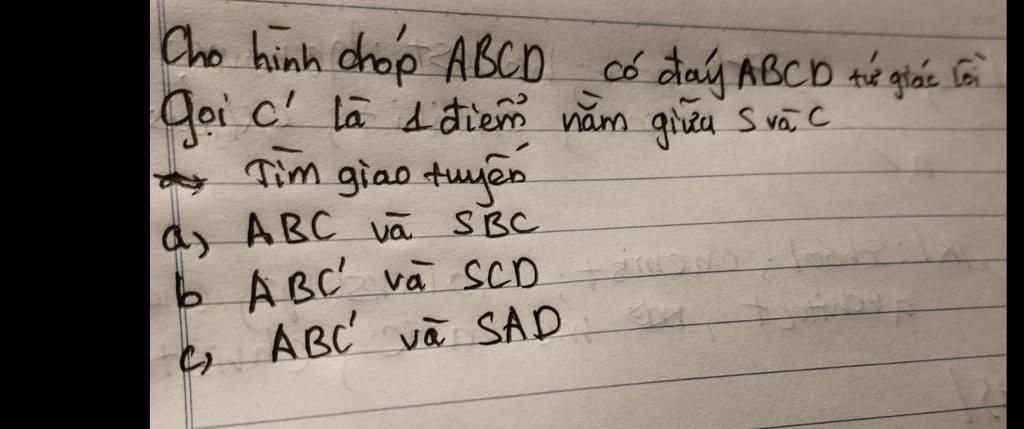 Cho hình chóp ABCD có đáy ABCD tứ giác lồi
Gọi C' là 1 điểm nằm giữa S và C
Tìm giao tuyến
a) ABC và SBC
b ABC' và SCD
c) ABC' và SAD